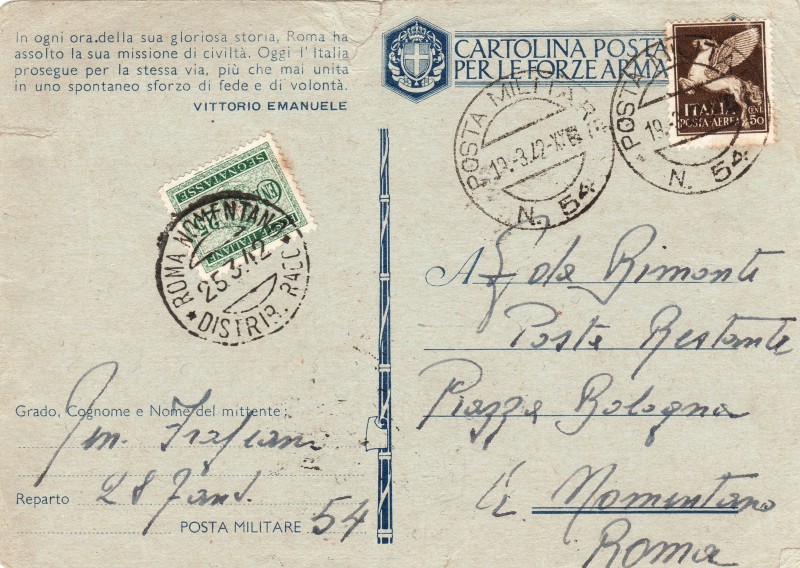 In ogni ora della sua gloriosa storia, Roma ha
assolto la sua missione di civiltà. Oggi l'Italia
prosegue per la stessa via, più che mai unita
in uno spontaneo sforzo di fede e di volontà.
VITTORIO EMANUELE
CARTOLINA POSTA
PER LE FORZE ARMA
POSTA MILITARE
19.3.42-XX
N. 54
POSTA MILITARE
19.3.
N. 54
ITALIA
CENT.
POSTA AEREA
50
SEGNATASSE
CENT
25
POSTE ITALIANE
ROMA NOMENTANO
25.3.42
DISTRIB. RACC.
da Rimonti
Posta Restante
Piazza Bologna
Nomentano
Roma
Grado, Cognome e Nome del mittente:
Reparto 28 Fant.
POSTA MILITARE 54